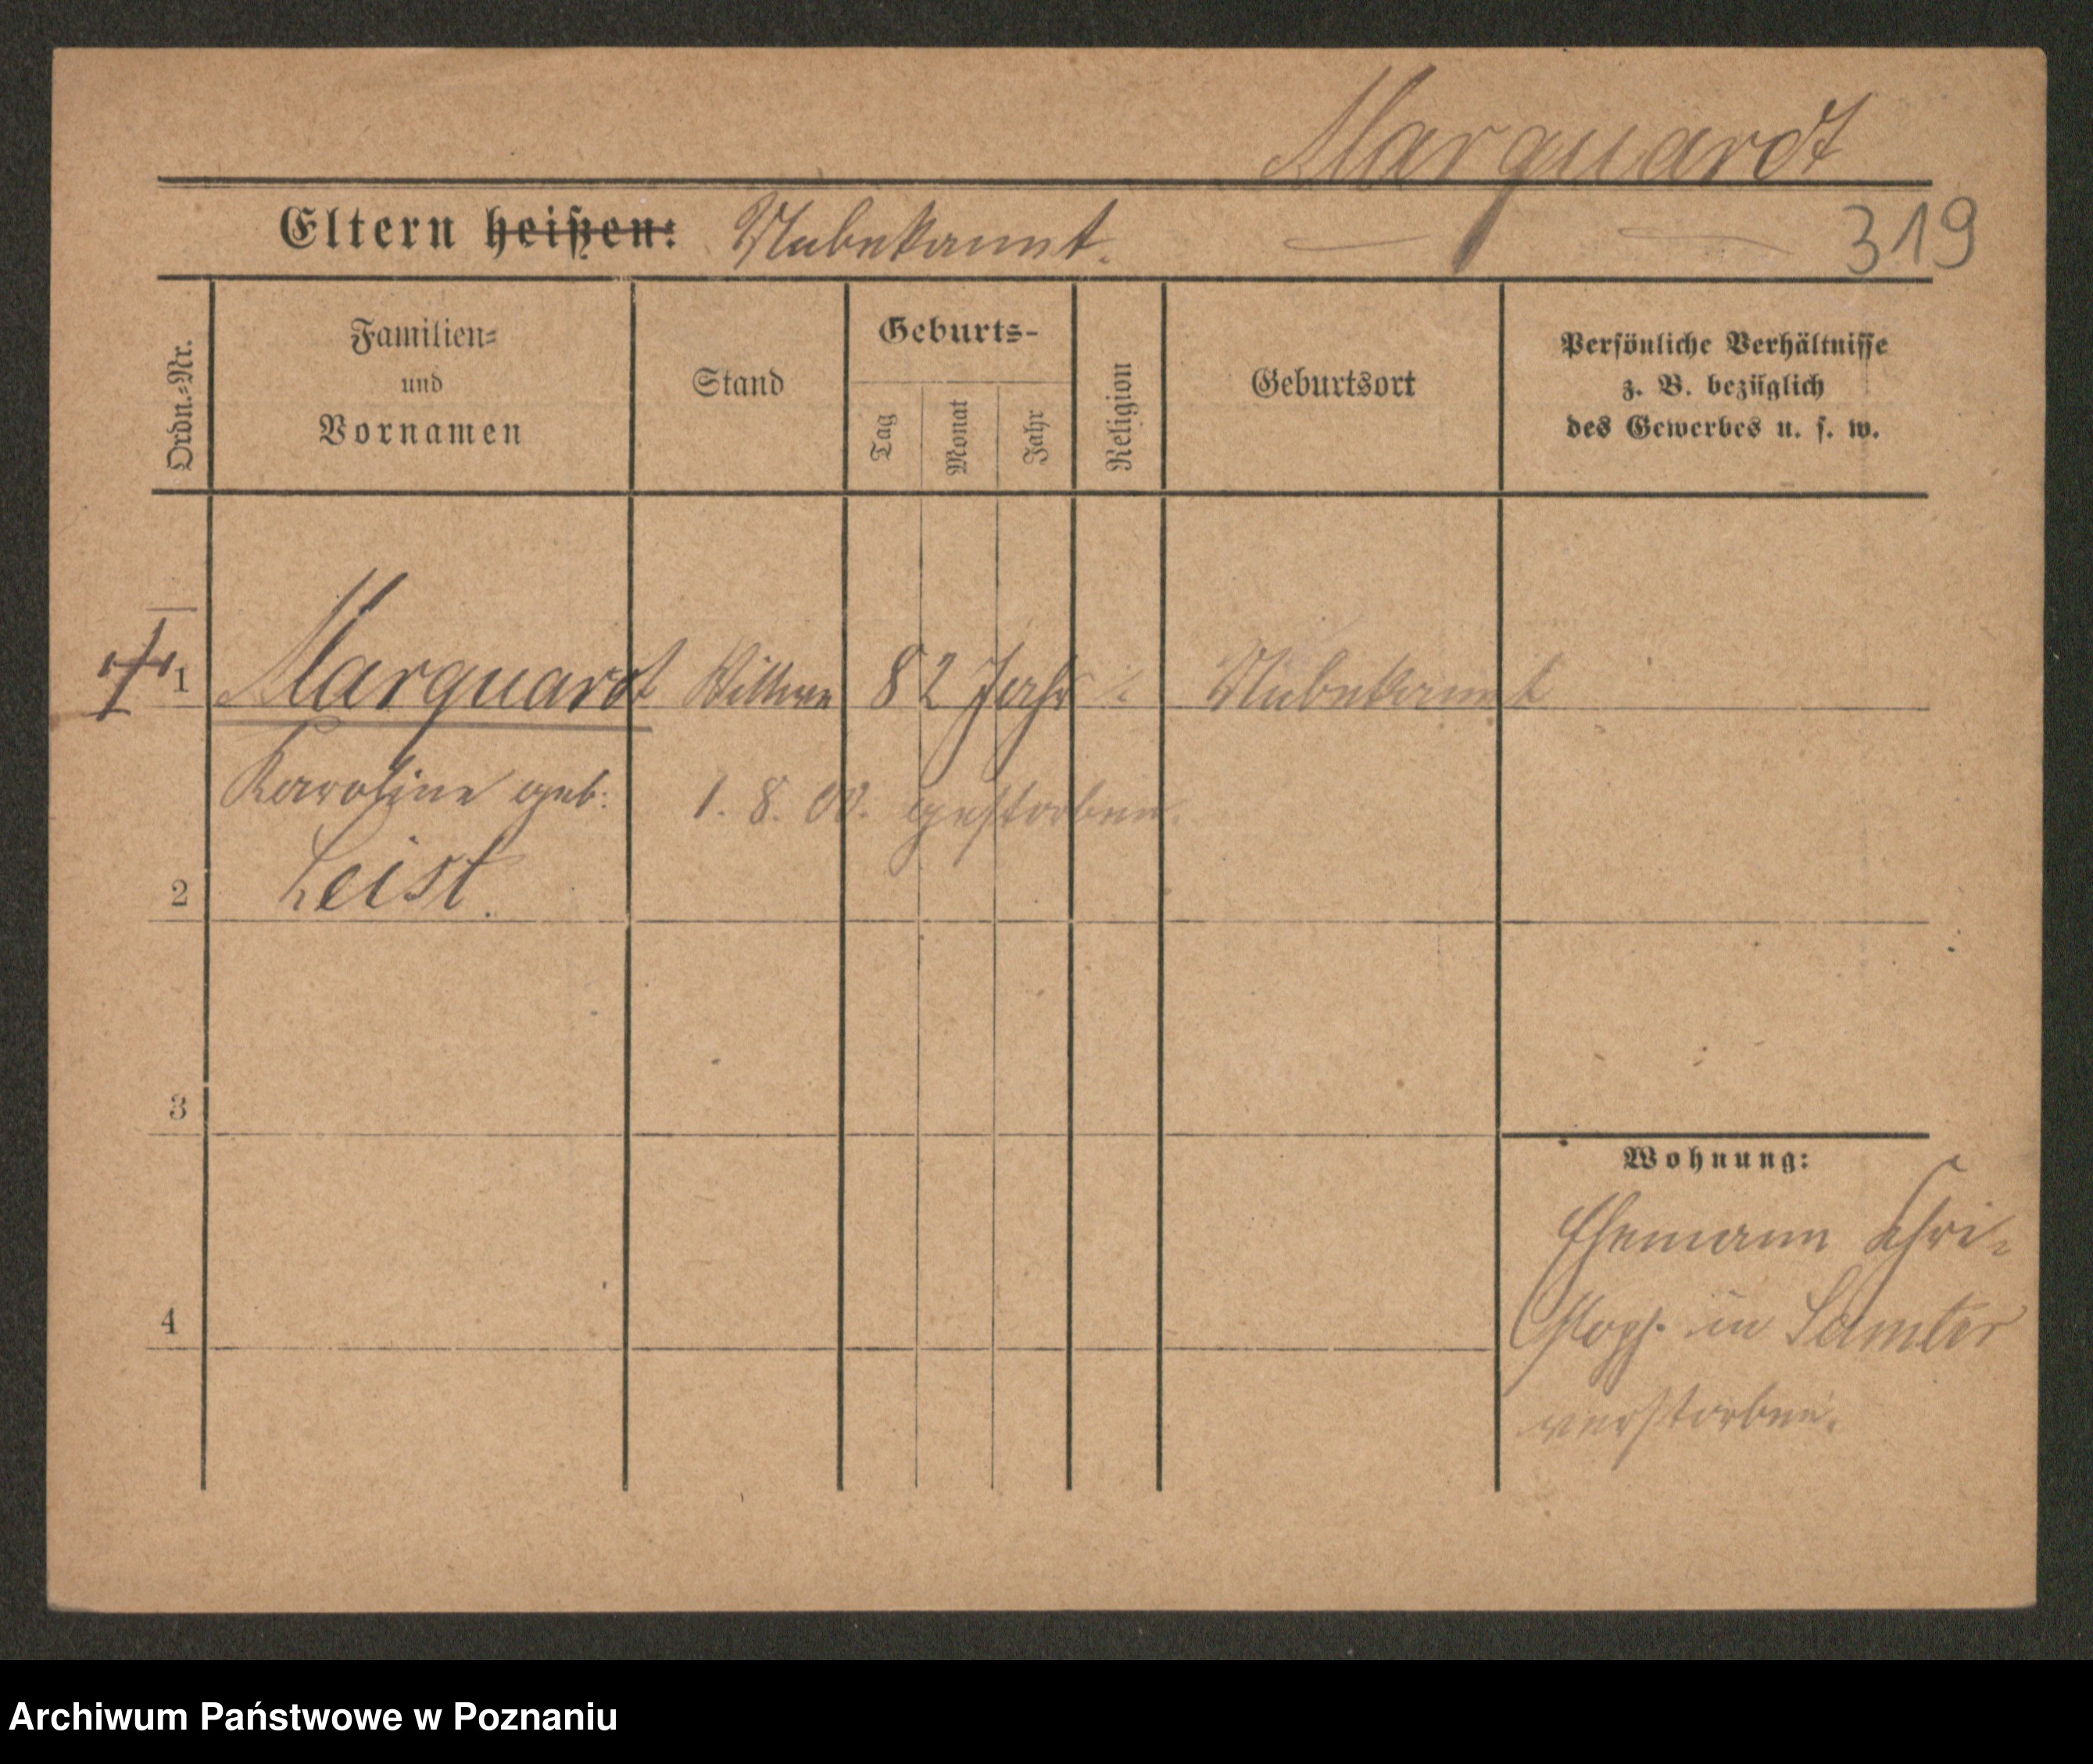 Marquardt
Eltern heißen: Unbekannt.
319
Ordn.-Nr.
Familien-
und
Vornamen
Stand
Geburts-
Tag
Monat
Jahr
Religion
Geburtsort
Persönliche Verhältnisse
z. B. bezüglich
des Gewerbes u. s. w.
1 Marquardt Wittwe 82 Jahr Unbekannt
Karoline geb. 1. 8. 00. gestorben.
2 Leist.
3
Wohnung:
Ehemann Chri-
4
stoph. in Samter
verstorben.
Archiwum Państwowe w Poznaniu